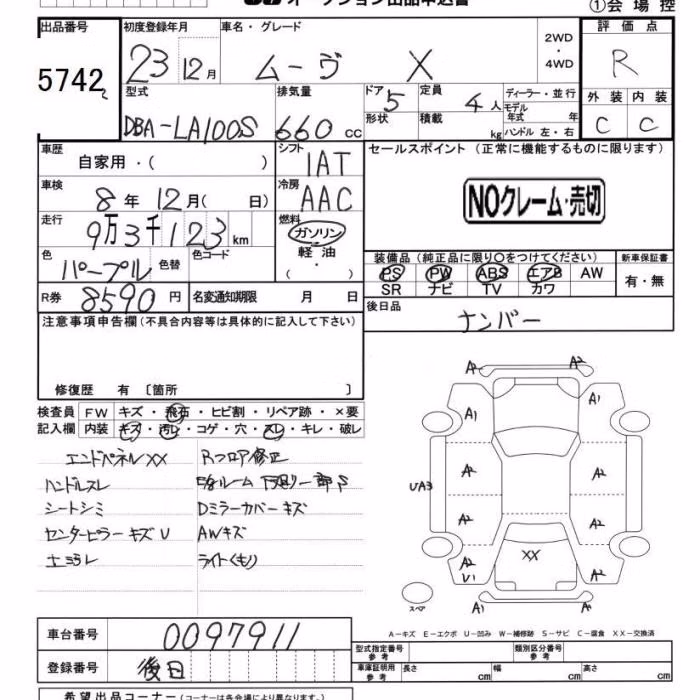 オークション出品申込書
①会場控
出品番号 初度登録年月 車名・グレード 2WD・4WD 評価点
5742 23 12月 ムーヴ X R
型式 排気量 ドア 5 定員 4人 ディーラー・並行 外装 内装
DBA-LA100S 660 cc 形状 積載 kg モデル年式 年 C C
ハンドル 左・右
車歴 自家用・( ) シフト 1AT セールスポイント (正常に機能するものに限ります)
車検 8年 12月( 日) 冷房 AAC NOクレーム・売切
走行 9万3千123 km 燃料 ガソリン・軽油・( )
色 パープル 色替 色コード
装備品 (純正品に限り○をつけてください) 新車保証書
PS PW ABS エアB AW 有・無
SR ナビ TV カワ
R券 8590円 名変通知期限 月 日 後日品
ナンバー
注意事項申告欄(不具合内容等は具体的に記入して下さい)
修復歴 有 〔箇所 〕
検査員 FW キズ・飛石・ヒビ割・リペア跡・×要
記入欄 内装 キズ・汚レ・コゲ・穴・スレ・キレ・破レ
エンドパネルXX Rフロア修正
ハンドルスレ
シートシミ Dミラーカバーキズ
センターピラーキズU AWキズ
ライトくもり
A2 A2
A1 A1
UA3 A2 A2
A2 A2
XX
A2 U1 A2
A1 A2
スペア
A-キズ E-エクボ U-凹み W-補修跡 S-サビ C-腐食 XX-交換済
車台番号 0097911
型式指定番号 参考 類別区分番号 参考
登録番号 後日
車庫証明用 参考 長さ cm 幅 cm 高さ cm
希望出品コーナー(コーナーは各会場により異なります)